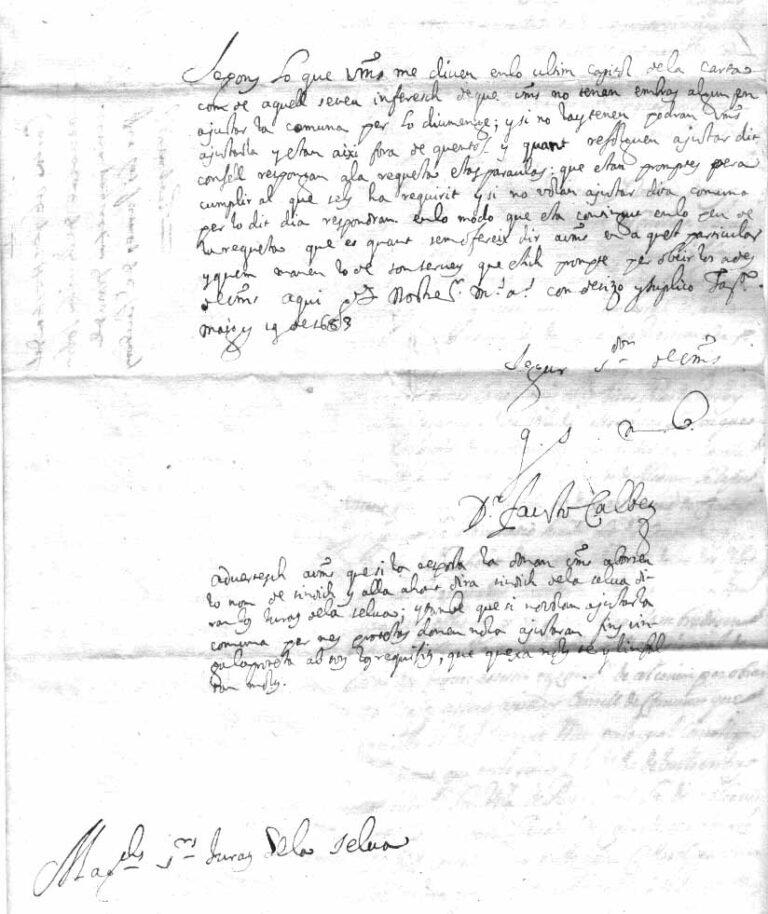 Segons lo que vms me diuen en lo ultim capitol de la carta
com de aquell seveu inferesch de que vms no tenan embras algun en
ajustar la comuna per lo diumenge; y si no lay tenen podran vms
ajustarla y estan aixi fora de quentos y quant resolguen ajustar dit
consell respongan a la requesta estas paraulas: que estan promptes pera
cumplir al que sels ha requirit y si no volan ajustar dita comuna
per lo dit dia respondran en lo modo que esta continuat en lo peu de
la requesta que es quant semofereix dir a vms en aquet particular
y quem manen lo de son servey que estich prompte per obeir los a de
de vms aqui Nostre Sr. m. a. con desizo y suplico
Maig y 19 de 1683
Segur dor de vms
q. s. m. B.
Dr. Fausto Calbez
Advertesch a vms que si la resposta la donan vms
lo nom de sindich y alla ahont dira sindich de la selva di-
ran los Jurats de la selva; y tambe que si no volan ajustar la
comuna per mes protestas donan nola ajustaran fins vin-
ga la resposta als requisits, que
ran molt.
Magchs Srs Jurats de la selva